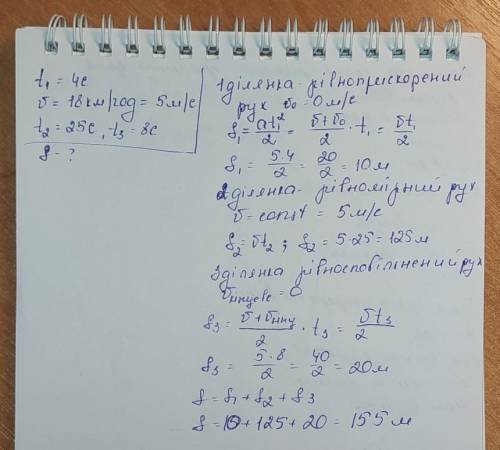 t₁ = 4с
υ = 18км/год = 5м/с
t₂ = 25с, t₃ = 8с
S - ?
1 ділянка - рівноприскорений
рух υ₀ = 0м/с
S₁ = at₁²/2 = (υ+υ₀)/2 · t₁ = υt₁/2
S₁ = 5·4/2 = 20/2 = 10м
2 ділянка - рівномірний рух
υ = const = 5м/с
S₂ = υt₂ ; S₂ = 5·25 = 125м
3 ділянка рівносповільнений рух
υкінцеве = 0
S₃ = (υ+υкінц)/2 · t₃ = υt₃/2
S₃ = 5·8/2 = 40/2 = 20м
S = S₁ + S₂ + S₃
S = 10 + 125 + 20 = 155м